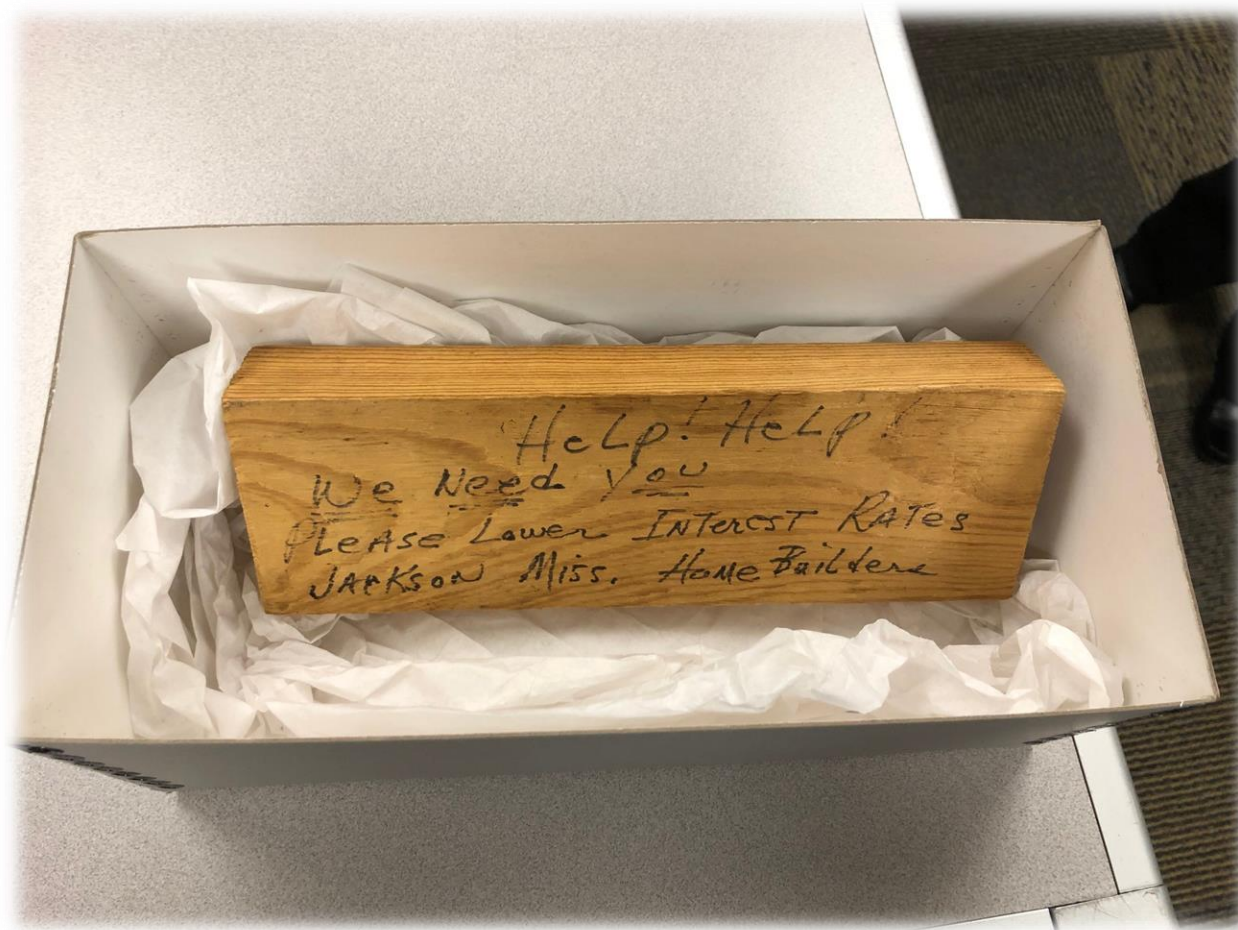 Help! Help!
We Need you
Please Lower Interest Rates
Jackson Miss. Home Builders